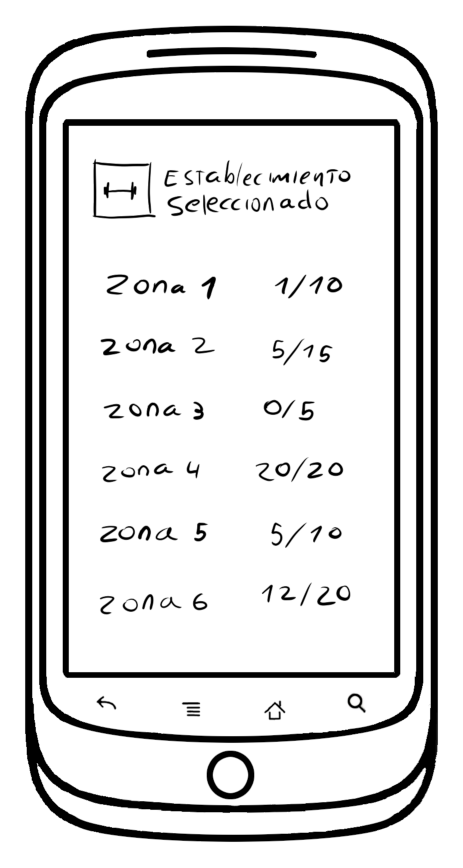 Establecimiento
Seleccionado
Zona 1 1/10
zona 2 5/15
zona 3 0/5
zona 4 20/20
zona 5 5/10
zona 6 12/20